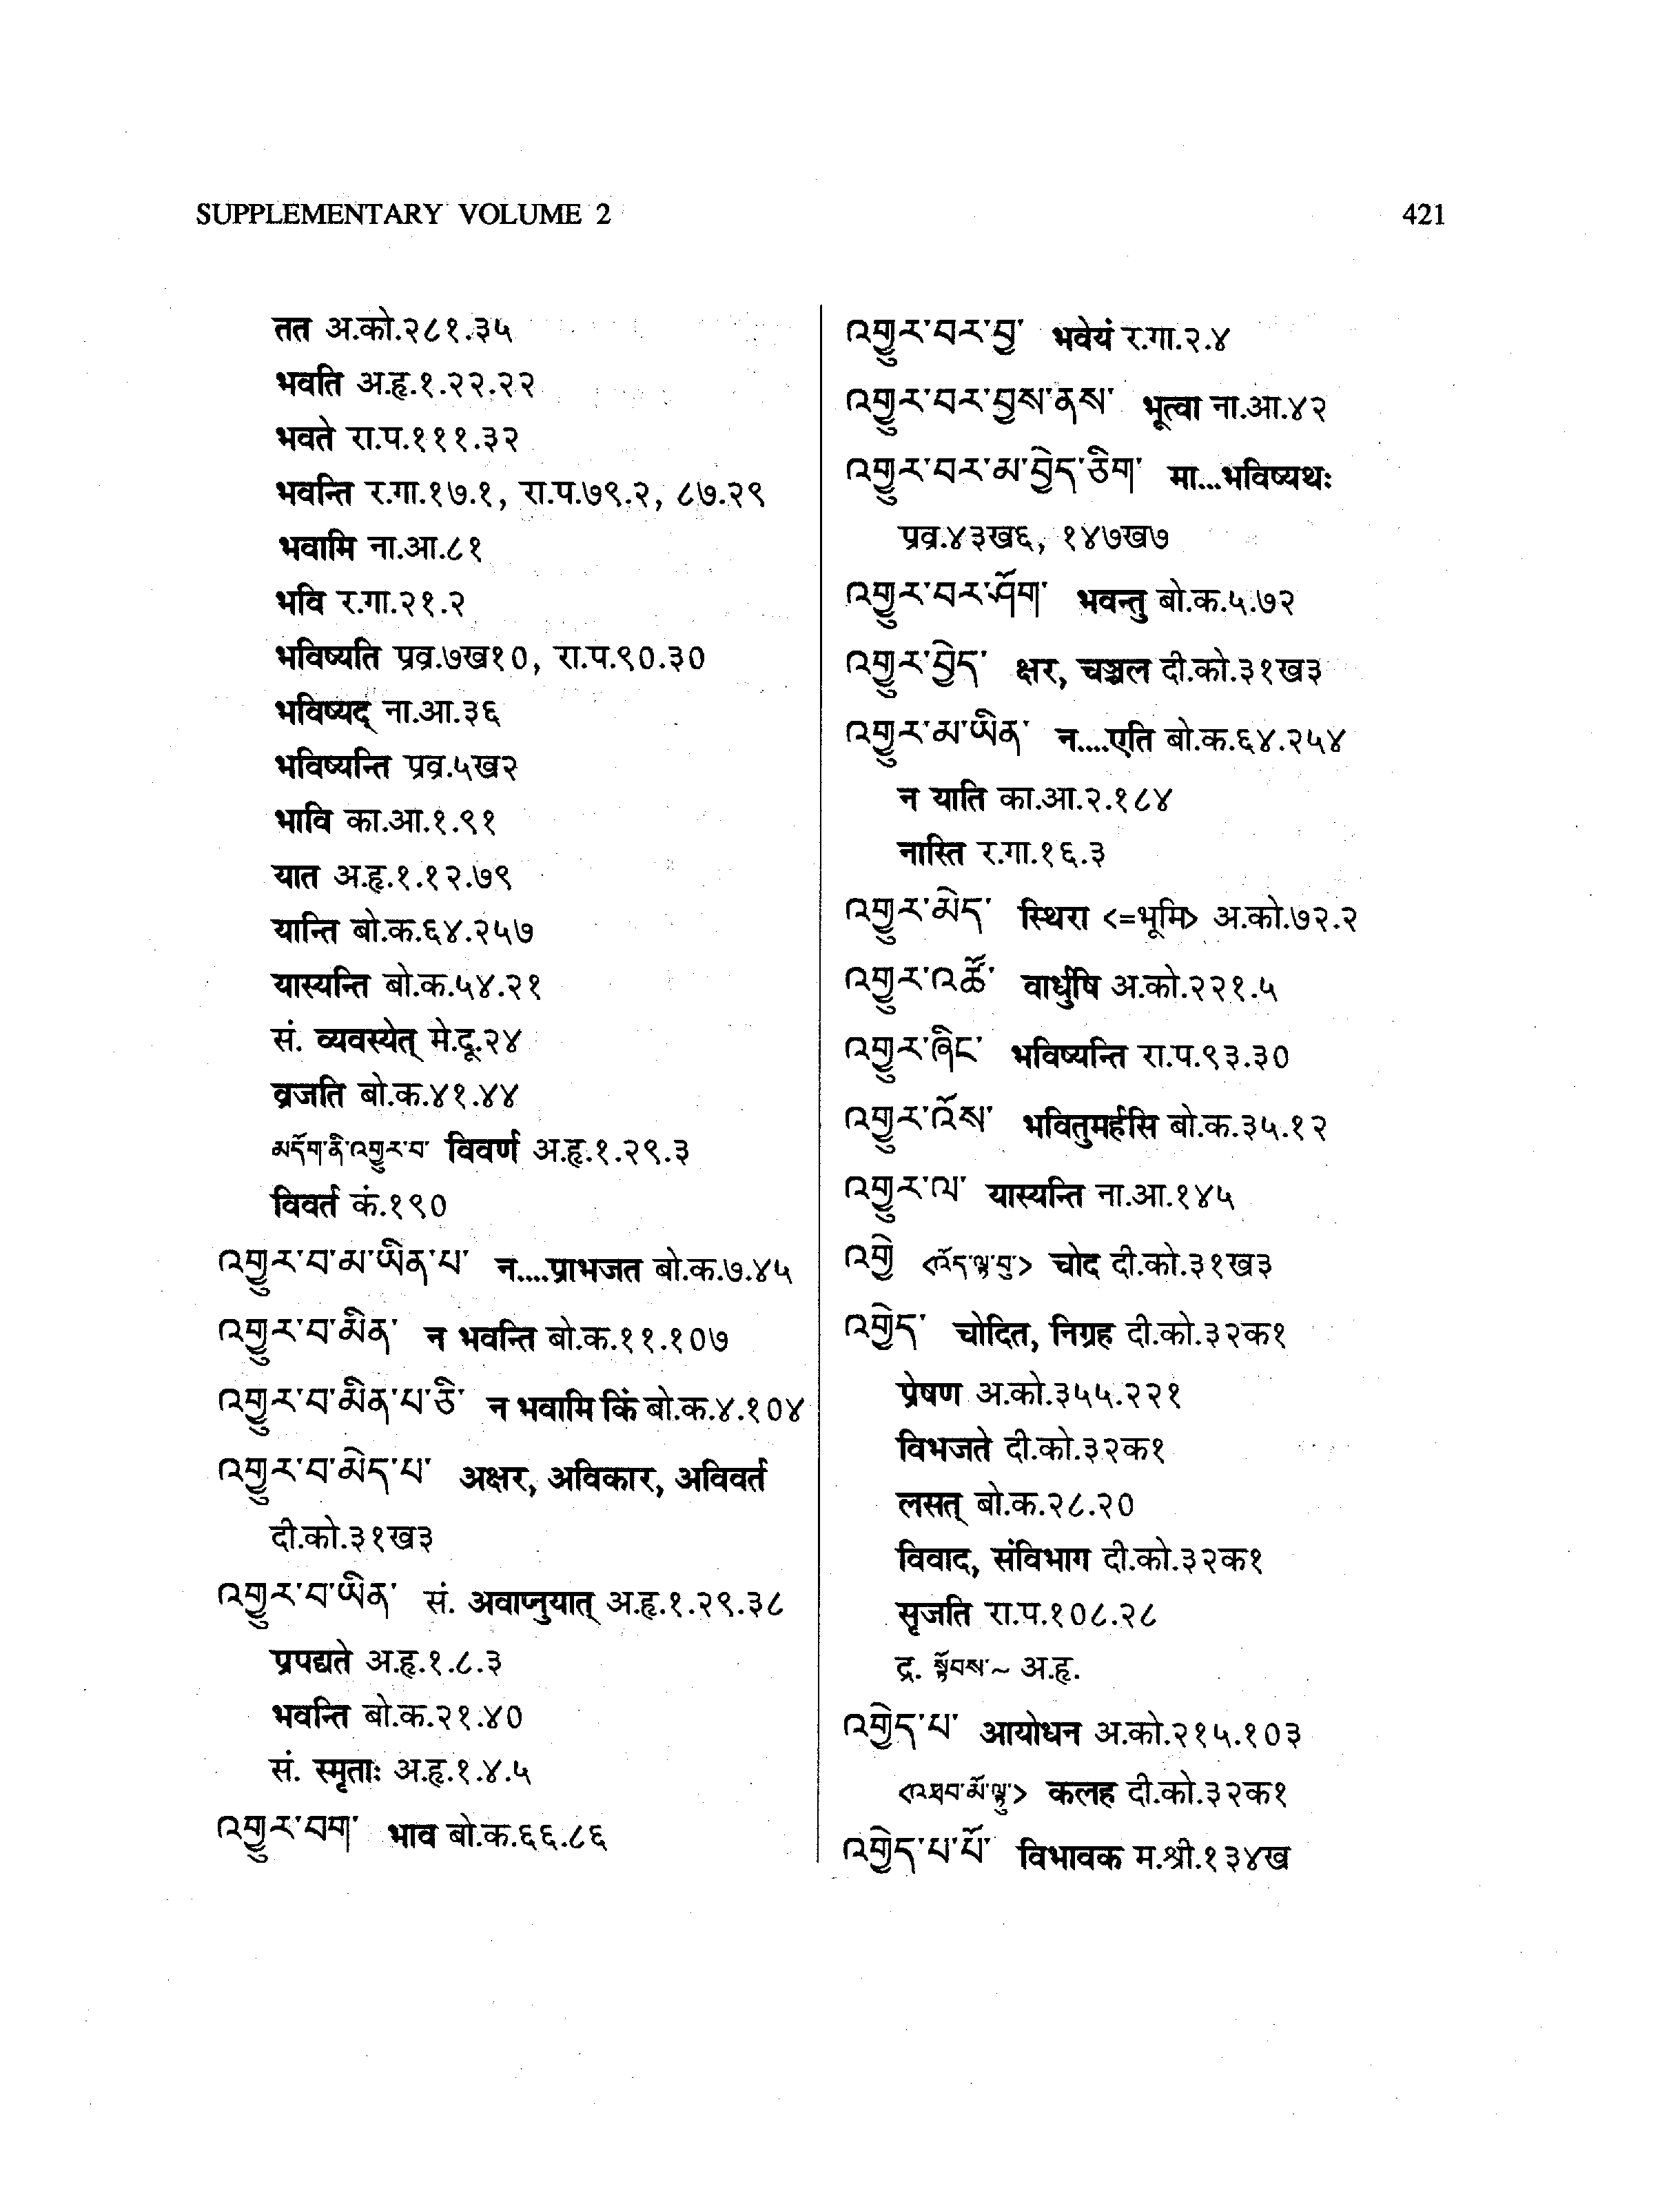 SUPPLEMENTARY VOLUME 2 421
तत अ.को.२८१.३५
भवति अ.हृ.१.२२.२२
भवते रा.प.१११.३२
भवन्ति र.गा.१७.१, रा.प.७९.२, ८७.२९
भवामि ना.आ.८१
भवि र.गा.२१.२
भविष्यति प्रव्र.७ख१०, रा.प.९०.३०
भविष्यद् ना.आ.३६
भविष्यन्ति प्रव्र.५ख२
भावि का.आ.१.९१
यात अ.हृ.१.१२.७९
यान्ति बो.क.६४.२५७
यास्यन्ति बो.क.५४.२१
सं. व्यवस्येत् मे.दू.२४
व्रजति बो.क.४१.४४
མདོག་ནི་འགྱུར་བ་ विवर्ण अ.हृ.१.२९.३
विवर्त कं.१९०
འགྱུར་བ་མ་ཡིན་པ་ न....प्राभजत बो.क.७.४५
འགྱུར་བ་མིན་ न भवन्ति बो.क.११.१०७
འགྱུར་བ་མིན་པ་ཅི་ न भवामि किं बो.क.४.१०४
འགྱུར་བ་མེད་པ་ अक्षर, अविकार, अविवर्त
दी.को.३१ख३
འགྱུར་བ་ཡིན་ सं. अवाप्नुयात् अ.हृ.१.२९.३८
प्रपद्यते अ.हृ.१.८.३
भवन्ति बो.क.२१.४०
सं. स्मृताः अ.हृ.१.४.५
འགྱུར་བག་ भाव बो.क.६६.८६
འགྱུར་བར་བྱ་ भवेयं र.गा.२.४
འགྱུར་བར་བྱས་ནས་ भूत्वा ना.आ.४२
འགྱུར་བར་མ་བྱེད་ཅིག་ मा...भविष्यथः
प्रव्र.४३ख६, १४७ख७
འགྱུར་བར་ཤོག་ भवन्तु बो.क.५.७२
འགྱུར་བྱེད་ क्षर, चञ्चल दी.को.३१ख३
འགྱུར་མ་ཡིན་ न....एति बो.क.६४.२५४
न याति का.आ.२.१८४
नास्ति र.गा.१६.३
འགྱུར་མེད་ स्थिरा <=भूमि> अ.को.७२.२
འགྱུར་འཚོ་ वार्धुषि अ.को.२२१.५
འགྱུར་ཞིང་ भविष्यन्ति रा.प.९३.३०
འགྱུར་འོས་ भवितुमर्हसि बो.क.३५.१२
འགྱུར་ལ་ यास्यन्ति ना.आ.१४५
འགྱེ <འོད་ལྟ་བུ་> चोद दी.को.३१ख३
འགྱེད་ चोदित, निग्रह दी.को.३२क१
प्रेषण अ.को.३५५.२२१
विभजते दी.को.३२क१
लसत् बो.क.२८.२०
विवाद, संविभाग दी.को.३२क१
सृजति रा.प.१०८.२८
द्र. སྟོབས་~ अ.हृ.
འགྱེད་པ་ आयोधन अ.को.२१५.१०३
<འཐབ་མོ་ལྟ་བུ་> कलह दी.को.३२क१
འགྱེད་པ་པོ་ विभावक म.श्री.१३४ख